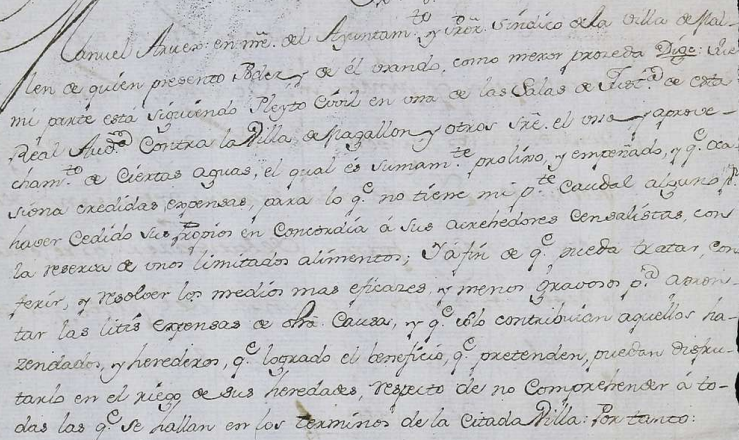 Manuel en nre. del Ayuntam.to y Pror. Sindico de la villa de Mal-
len de quien presento Poder, y de él usando, como mexor prozeda Digo: Que
mi parte está siguiendo Pleyto Civil en una de las Salas de Just.a de esta
Real Aud.a Contra la Villa de Magallon y otros sre. el uso y aprove-
cham.to de Ciertas aguas, el qual és sumam.te prolixo, y empeñado, y q.e oca-
siona crecidas expensas, para lo q.e no tiene mi p.te Caudal alguno p.r
haver Cedido sus Propios en Concordia á sus acrehedores Censalistas, con
la reserva de unos limitados alimentos; Y á fin de q.e pueda tratar, con-
ferir, y resolver los medios mas eficazes, y menos gravosos p.a apron-
tar las litis expensas de dha. Causa, y q.e solo contribuian aquellos ha-
zendados, y herederos, q.e logrado el beneficio, q.e pretenden, puedan disfru-
tarlo en el riego de sus heredades, respecto de no Comprehender á to-
das las q.e se hallan en los terminos de la Citada Villa: Por tanto: